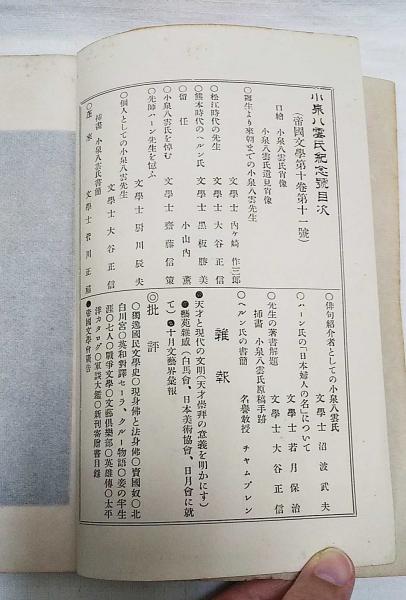 小泉八雲氏紀念號目次
（帝國文學第十卷第十一號）
口繪　小泉八雲氏肖像
小泉八雲氏遺見肖像
○誕生より來朝までの小泉八雲先生
文學士　内ケ崎作三郎
○松江時代の先生
文學士　大谷正信
○熊本時代のヘルン氏　文學士　黑板勝美
○留任
小山内薫
○小泉八雲氏を悼む
文學士　齋藤信策
○先師ハーン先生を憶ふ
文學士　厨川辰夫
○個人としての小泉八雲先生
文學士　大谷正信
挿畵　小泉八雲氏書簡
○蓬萊
文學士　若月正
○俳句紹介者としての小泉八雲氏
文學士　沼波武夫
○ハーン氏の「日本婦人の名」について
文學士　若月保治
○先生の著書解題
文學士　大谷正信
挿畵　小泉八雲氏原稿手跡
○ヘルン氏の書簡
名譽敎授　チャムブレン
雜報
●天才と現代の文明（天才崇拜の意義を明かにす）
●藝苑雜感（白馬會、日本美術協會、日月會に就
て）●十月文藝界彙報
◎批評
○獨逸國民文學史○現身佛と法身佛○賣國奴○北
白川宮○英和對譯セーラ、クルー物語○妾の半生
涯○七人○戰爭文學○文藝倶樂部○英雄傳○太平
洋カタログ○軍談大鑑○新刊寄贈書目錄
●帝國文學會廣告